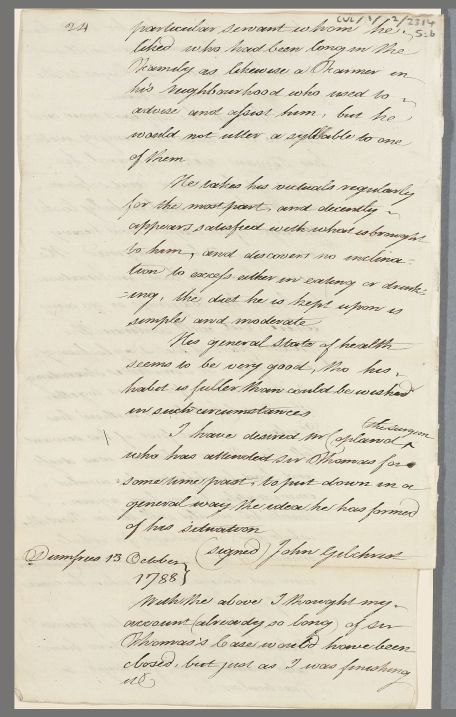 24
CUL/1/2/2314
S:6
particular servant whom he
liked who had been long in the
Family as likewise a Farmer in
his neighbourhood who used to
advise and assist him, but he
would not utter a syllable to one
of them
He takes his victuals regularly
for the most part, and decently
appears satisfied with what is brought
to him, and discovers no inclina-
tion to excess either in eating or drink-
=ing, the diet he is kept upon is
simple and moderate
His general State of health
seems to be very good, tho his
habit is fuller than could be wished
in such circumstances
I have desired Mr Copland (the surgeon
who has attended Sir Thomas for
some time past, to put down in a
general way the idea he has formed
of his situation
(signed) John Gilchrist
Dumfries 13 October
1788}
With the above I thought my
account (already so long) of Sir
Thomas's Case would have been
closed, but just as I was finishing
it